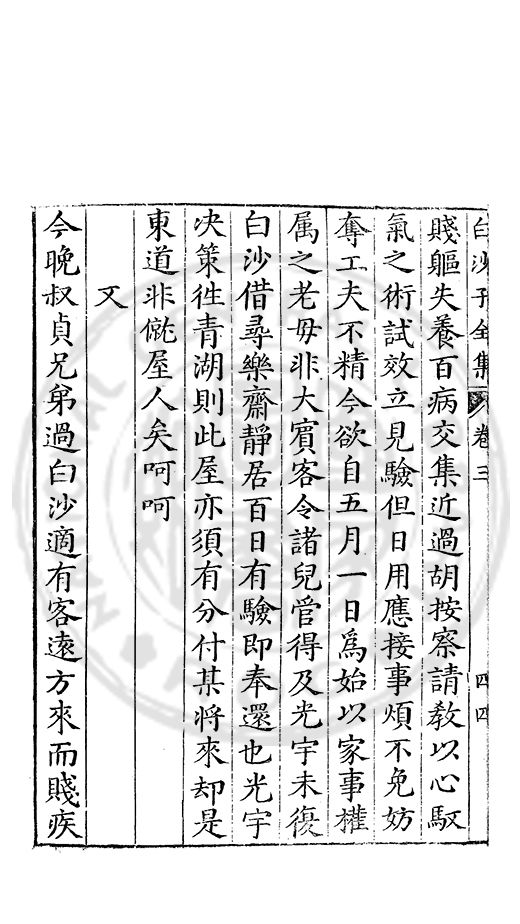 白沙子全集 卷三 四四
賤軀失養百病交集近過胡按察請教以心馭
氣之術試效立見驗但日用應接事煩不免妨
奪工夫不精今欲自五月一日爲始以家事權
属之老母非大賓客令諸兒管得及光宇未復
白沙借尋樂齋靜居百日有驗即奉還也光宇
决策徃青湖則此屋亦須有分付某將來却是
東道非僦屋人矣呵呵
又
今晚叔貞兄弟過白沙適有客逺方來而賤疾